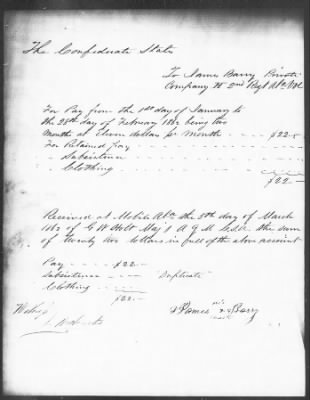 The Confederate States
To James Barry Private
Company 2nd Regt Ala Vol
For Pay from the 1st day of January to
the 28th day of February 1862 being two
months at Eleven dollars per month - - - - $22.-
For Retained Pay - - - -
" Subsistence - - - -
" Clothing - - - -
$22.-
Received at Mobile Ala the 5th day of March
1862 of G W Holt Maj & A Q M C.S.A. the sum
of twenty two dollars in full of the above account
Pay - - - $22.-
Subsistence - - - "Duplicate"
Clothing - - - -
$22.-
James his x Barry
mark
Witness